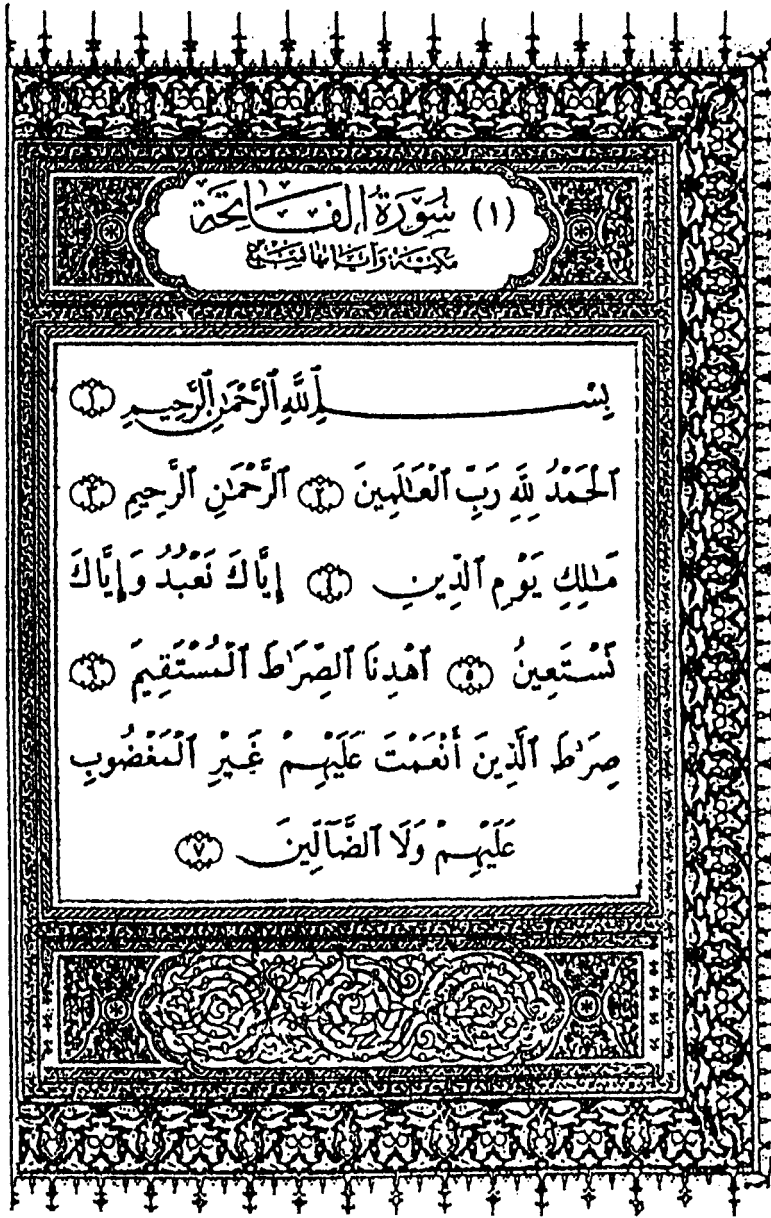 (١) سُورَةُ الْفَاتِحَة
مَكِّيَّة وَآيَاتُهَا سَبْعٌ
بِسْمِ ٱللَّهِ ٱلرَّحْمَـٰنِ ٱلرَّحِيمِ ١
ٱلْحَمْدُ لِلَّهِ رَبِّ ٱلْعَـٰلَمِينَ ٢ ٱلرَّحْمَـٰنِ ٱلرَّحِيمِ ٣
مَـٰلِكِ يَوْمِ ٱلدِّينِ ٤ إِيَّاكَ نَعْبُدُ وَإِيَّاكَ
نَسْتَعِينُ ٥ ٱهْدِنَا ٱلصِّرَٰطَ ٱلْمُسْتَقِيمَ ٦
صِرَٰطَ ٱلَّذِينَ أَنْعَمْتَ عَلَيْهِمْ غَيْرِ ٱلْمَغْضُوبِ
عَلَيْهِمْ وَلَا ٱلضَّآلِّينَ ٧